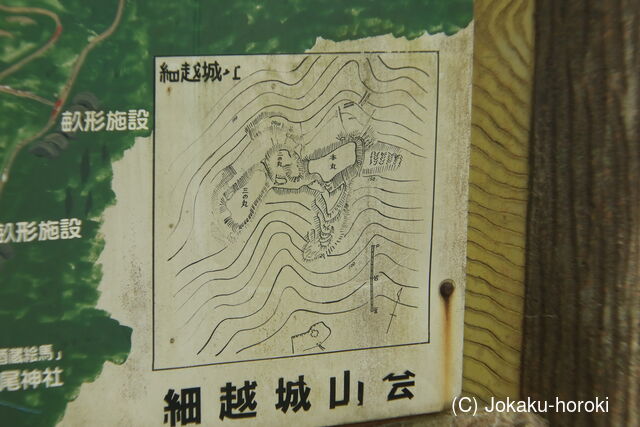 細越城
畝形施設
本丸
二の丸
三の丸
畝形施設
酒蔵絵馬」
尾神社
細越城山
(C) Jokaku-horoki